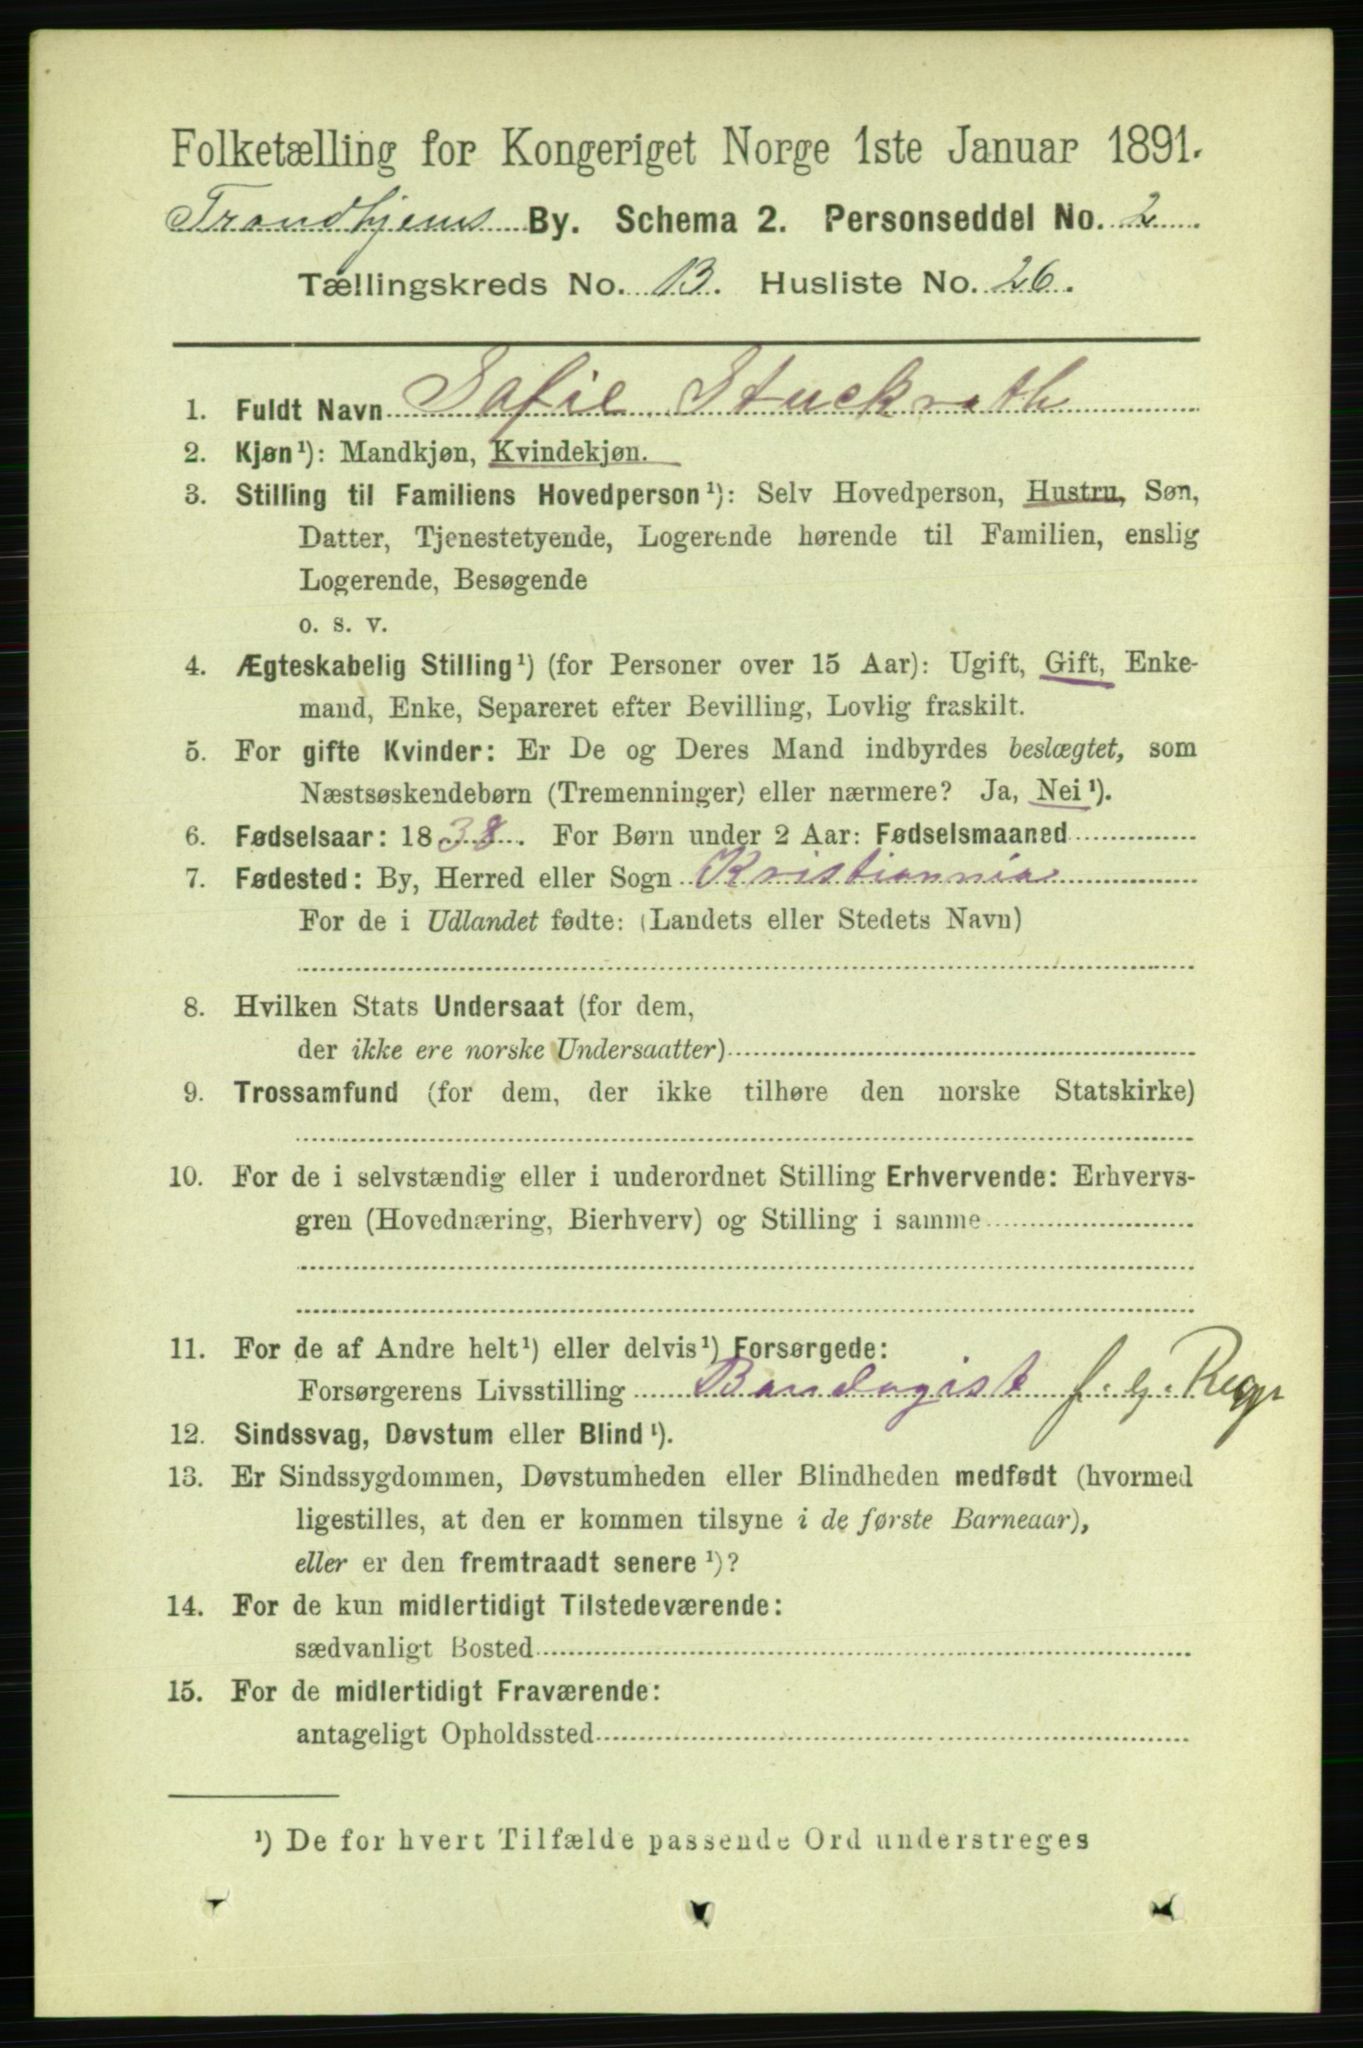 Folketælling for Kongeriget Norge 1ste Januar 1891.
Trondhjems By. Schema 2. Personseddel No. 2
Tællingskreds No. 13. Husliste No. 26.
1. Fuldt Navn Sofie Stuckrath
2. Kjøn¹): Mandkjøn, Kvindekjøn.
3. Stilling til Familiens Hovedperson¹): Selv Hovedperson, Hustru, Søn,
Datter, Tjenestetyende, Logerende hørende til Familien, enslig
Logerende, Besøgende
o. s. v.
4. Ægteskabelig Stilling¹) (for Personer over 15 Aar): Ugift, Gift, Enke-
mand, Enke, Separeret efter Bevilling, Lovlig fraskilt.
5. For gifte Kvinder: Er De og Deres Mand indbyrdes beslægtet, som
Næstsøskendebørn (Tremenninger) eller nærmere? Ja, Nei¹).
6. Fødselsaar: 1838. For Børn under 2 Aar: Fødselsmaaned
7. Fødested: By, Herred eller Sogn Kristiannia
For de i Udlandet fødte: (Landets eller Stedets Navn)
8. Hvilken Stats Undersaat (for dem,
der ikke ere norske Undersaatter)
9. Trossamfund (for dem, der ikke tilhøre den norske Statskirke)
10. For de i selvstændig eller i underordnet Stilling Erhvervende: Erhvervs-
gren (Hovednæring, Bierhverv) og Stilling i samme
11. For de af Andre helt¹) eller delvis¹) Forsørgede:
Forsørgerens Livsstilling Bandagist f. e.
12. Sindssvag, Døvstum eller Blind¹).
13. Er Sindssygdommen, Døvstumheden eller Blindheden medfødt (hvormed
ligestilles, at den er kommen tilsyne i de første Barneaar),
eller er den fremtraadt senere¹)?
14. For de kun midlertidigt Tilstedeværende:
sædvanligt Bosted
15. For de midlertidigt Fraværende:
antageligt Opholdssted
¹) De for hvert Tilfælde passende Ord understreges